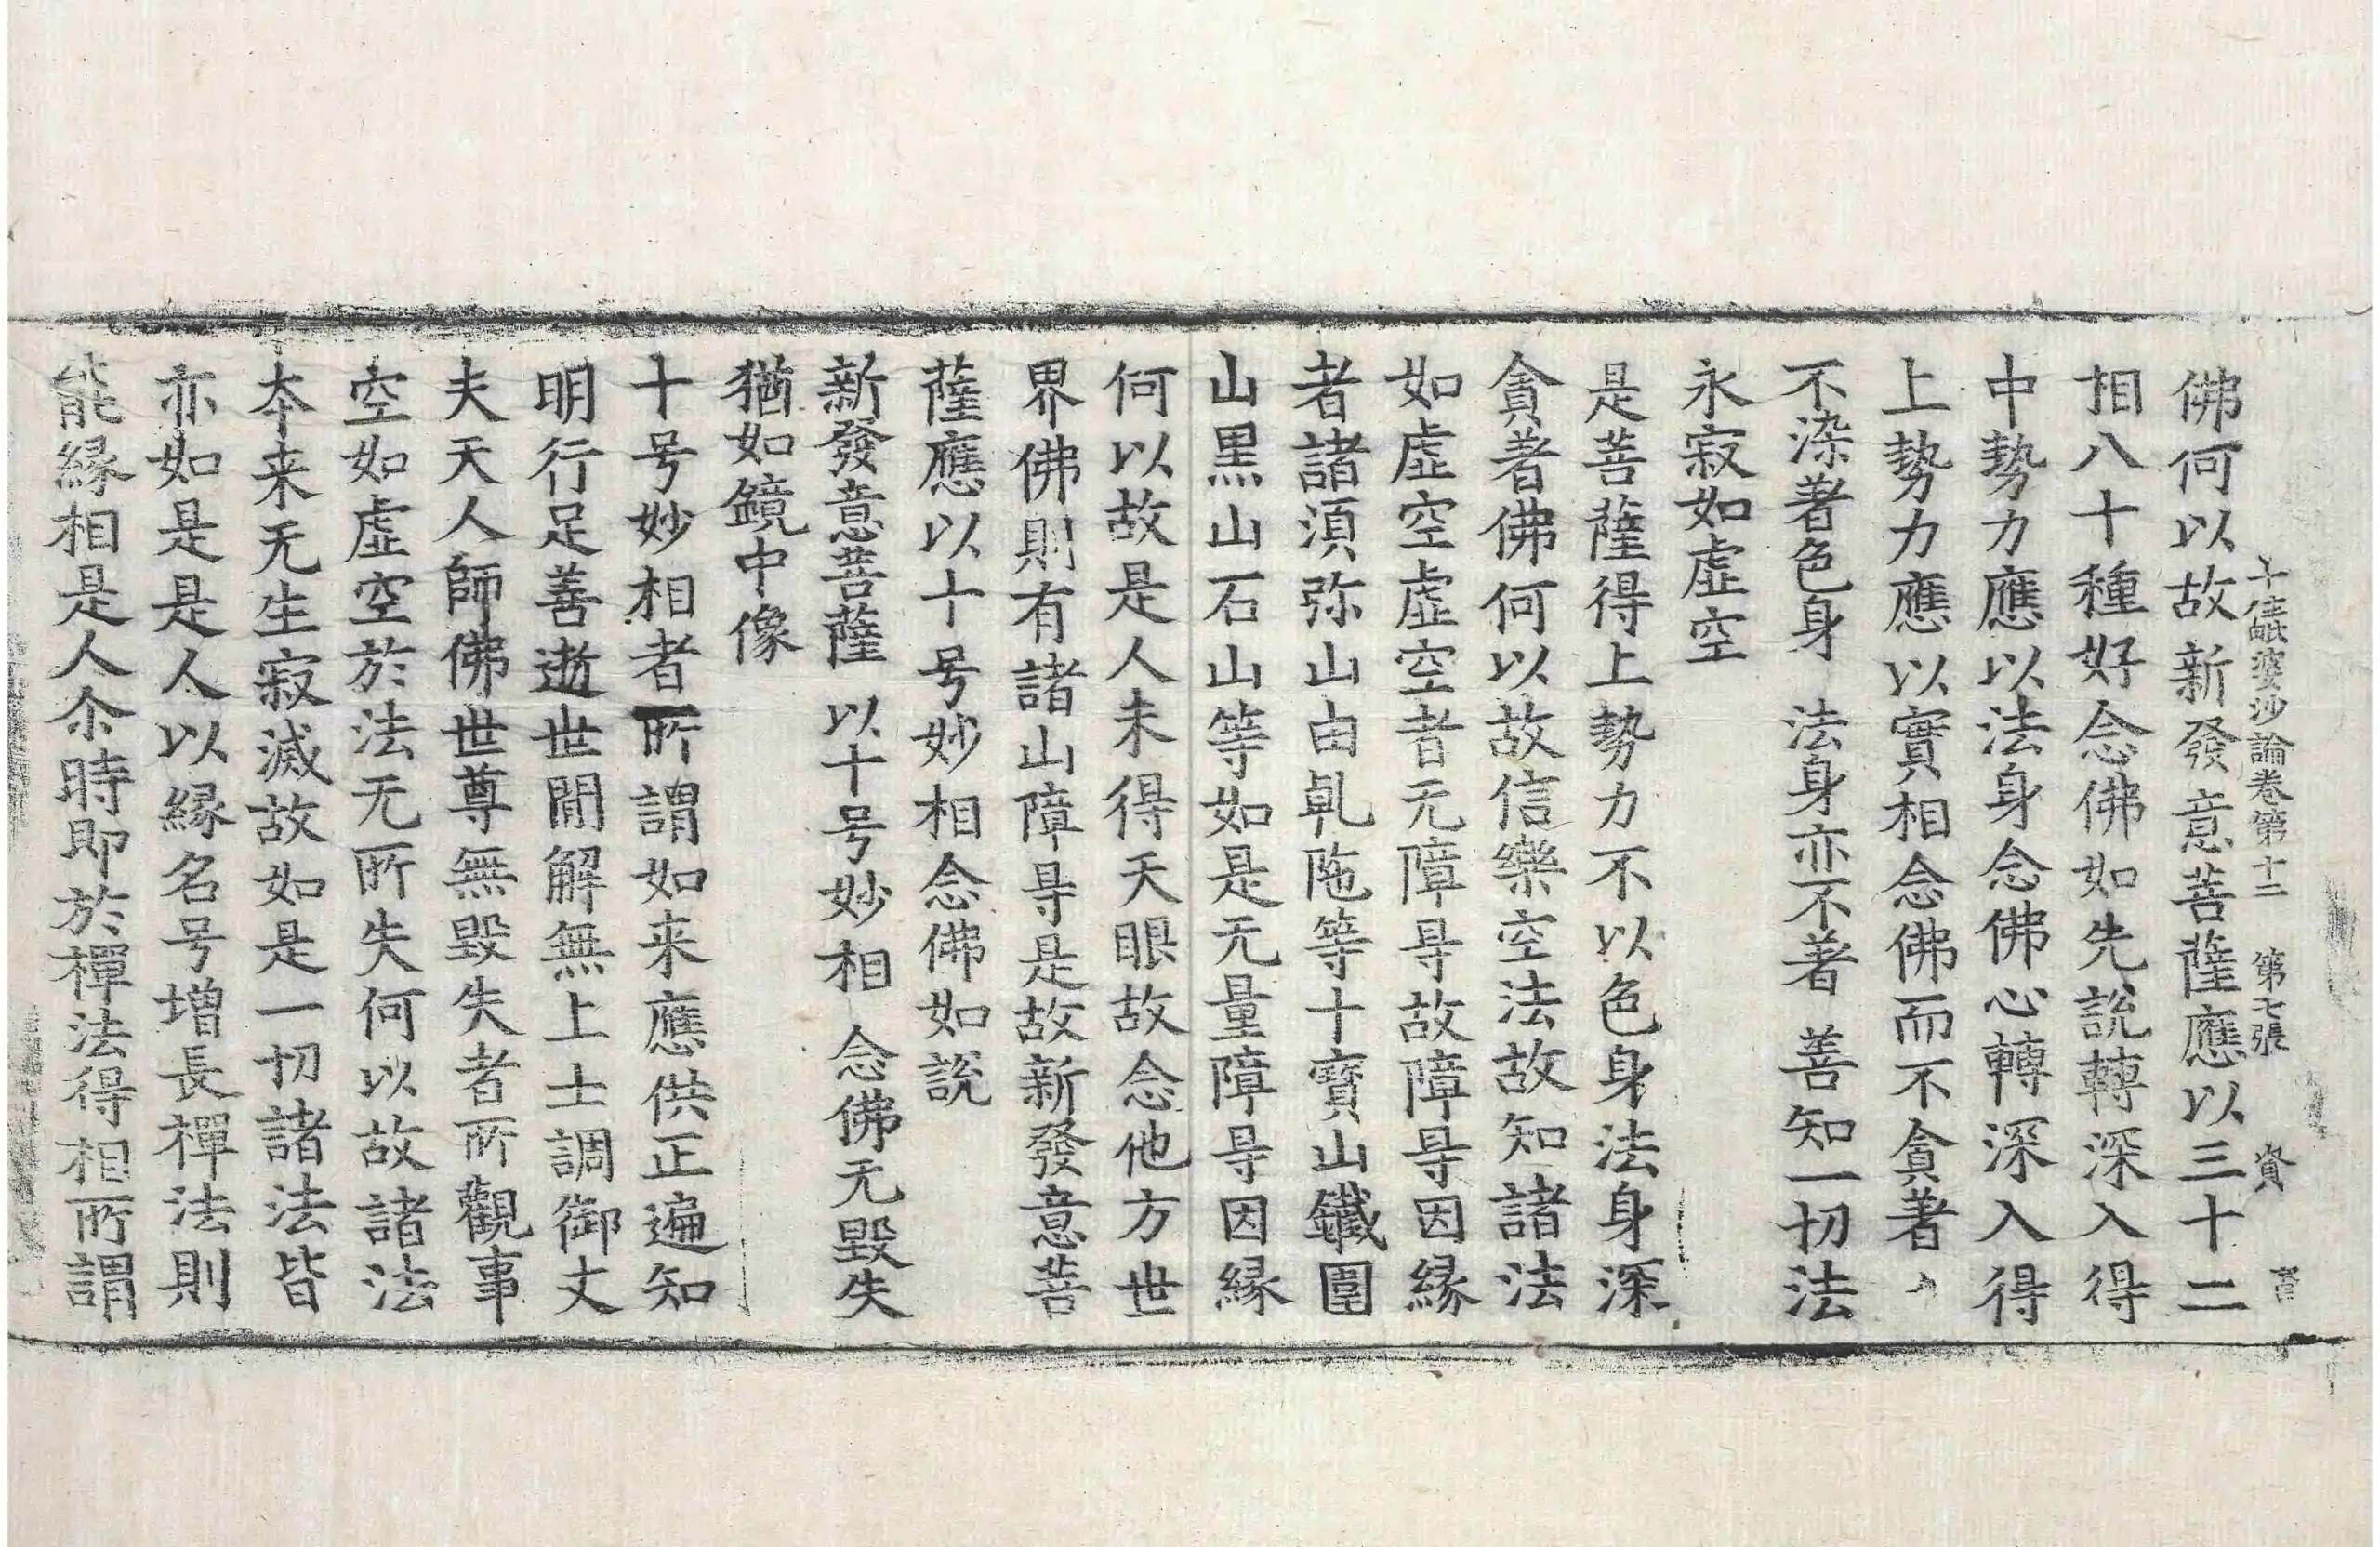 十住毗婆沙論卷第十二　第七張　資
佛何以故新發意菩薩應以三十二
相八十種好念佛如先說轉深入得
中勢力應以法身念佛心轉深入得
上勢力應以實相念佛而不貪著
不染著色身　法身亦不著　善知一切法
永寂如虛空
是菩薩得上勢力不以色身法身深
貪著佛何以故信樂空法故知諸法
如虛空虛空者无障㝵故障㝵因緣
者諸須弥山由乹陁等十寶山鐵圍
山黑山石山等如是无量障㝵因緣
何以故是人未得天眼故念他方世
界佛則有諸山障㝵是故新發意菩
薩應以十号妙相念佛如說
新發意菩薩　以十号妙相　念佛无毀失
猶如鏡中像
十号妙相者所謂如来應供正遍知
明行足善逝世間解無上士調御丈
夫天人師佛世尊無毀失者所觀事
空如虛空於法无所失何以故諸法
本来无生寂滅故如是一切諸法皆
亦如是是人以緣名号增長禪法則
能緣相是人尒時即於禪法得相所謂